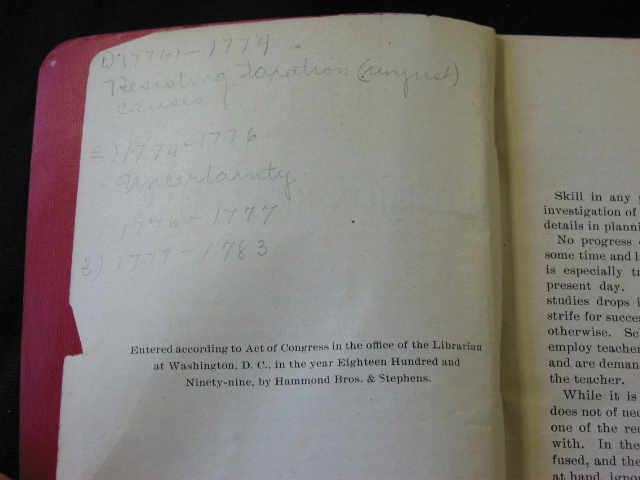 1) 1761 - 1774
Resisting taxation (unjust)
causes
2) 1774 - 1776
- Uncertainty.
1776 - 1777
3) 1777 - 1783
Entered according to Act of Congress in the office of the Librarian
at Washington, D. C., in the year Eighteen Hundred and
Ninety-nine, by Hammond Bros. & Stephens.
Skill in any
investigation of
details in planni
No progress
some time and l
is especially t
present day.
studies drops i
strife for succe
otherwise. Sc
employ teache
and are deman
the teacher.
While it is
does not of ne
one of the re
with. In the
fused, and the
at hand, igno